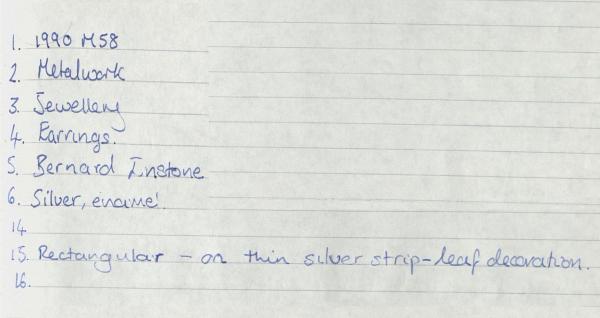 1. 1990 M58
2. Metalwork
3. Jewellery
4. Earrings.
5. Bernard Instone
6. Silver, enamel
14.
15. Rectangular - on thin silver strip-leaf decoration.
16.